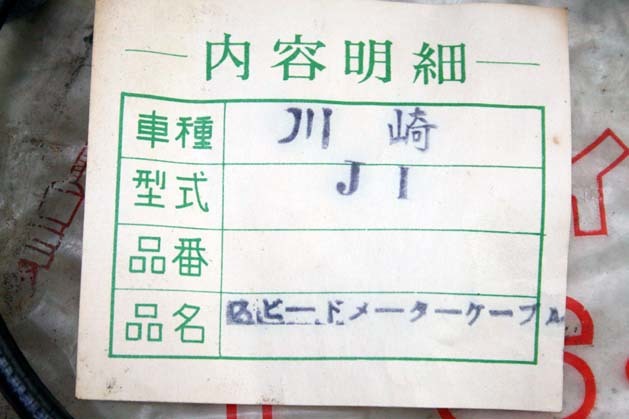 内容明細
車種 川崎
型式 J1
品番
品名 スピードメーターケーブル